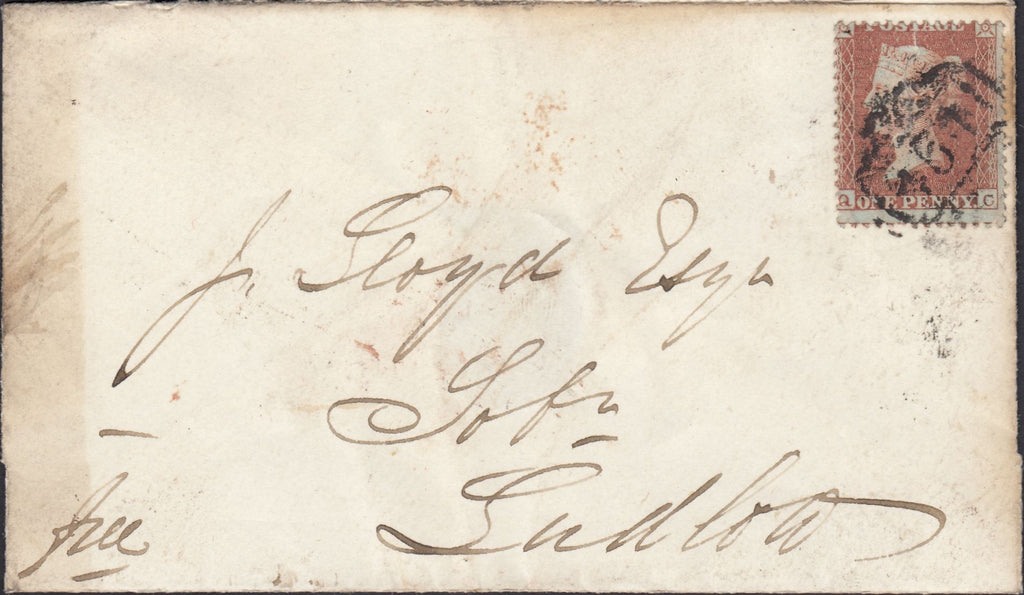 POSTAGE
Q C
ONE PENNY
J. Lloyd Esqr
Solr
Ludlow
free